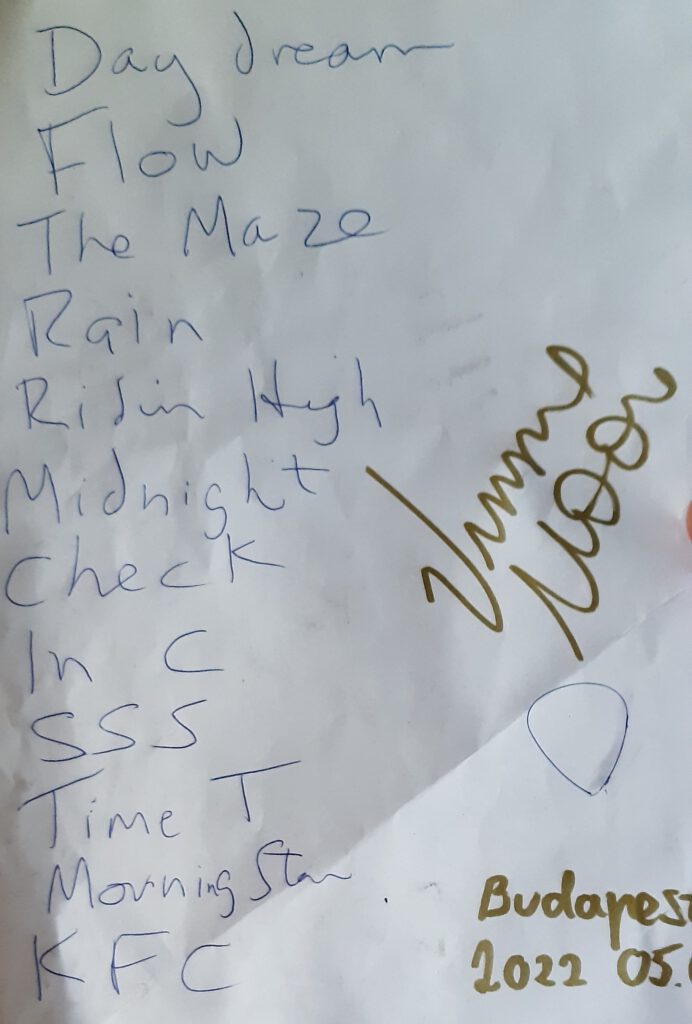 Day dream
Flow
The Maze
Rain
Ridin High
Midnight
Check
In C
SSS
Time T
Morning Star
KFC
Vinnie
Moore
Budapest
2022 05.0